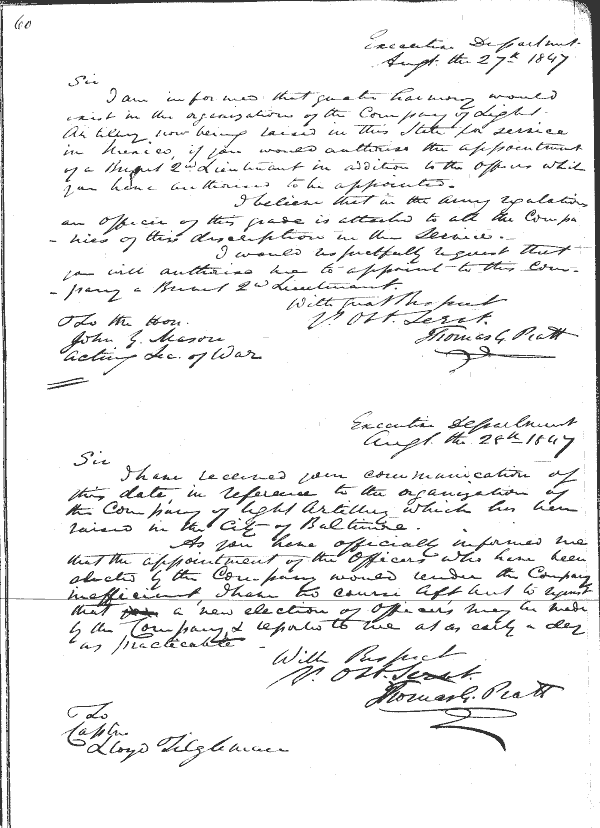 60
Executive Department.
Augt. the 27th 1847
Sir
I am informed that greater harmony would
exist in the organization of the Company of Light
Artillery now being raised in this State for service
in Mexico, if you would authorise the appointment
of a Brevet 2nd Lieutenant in addition to the officers which
you have authorised to be appointed.
I believe that in the Army regulations
an officer of this grade is attached to all the Compa
-nies of this description in the Service.
I would respectfully request that
you will authorise me to appoint to this Com-
-pany a Brevet 2nd Lieutenant.
With great Respect
Yr. Obt. Servt.
Thomas G. Pratt
To the Hon.
John Y. Mason
Acting Sec. of War
Executive Department
Augt. the 28th 1847
Sir
I have received your communication of
this date, in reference to the organization of
the Company of light Artillery which has been
raised in the City of Baltimore.
As you have officially informed me
that the appointment of the Officers who have been
elected by the Company would render the Company
inefficient I have no course left but to request
that a new election of officers may be made
by the Company & reported to me at as early a day
as Practicable
With Respect
Yr. Obt. Servt.
Thomas G. Pratt
To
Captn
Lloyd Tilghman